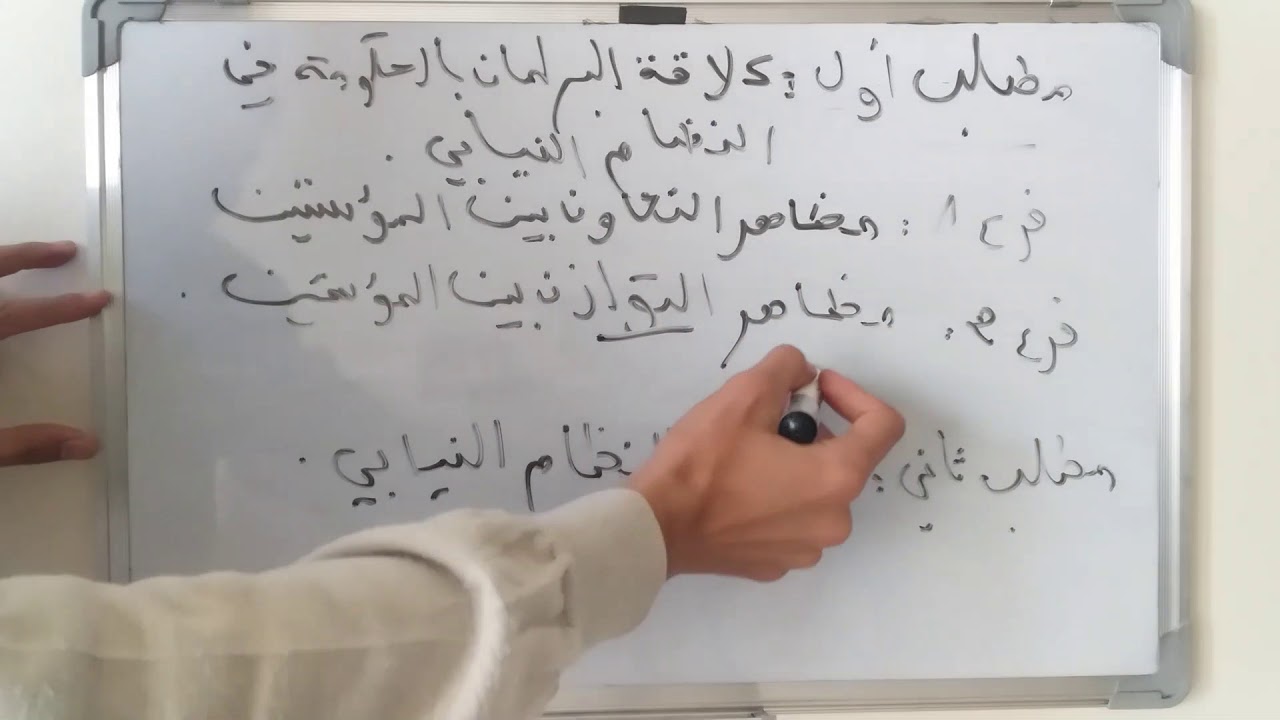 مطلب أول : علاقة البرلمان بالحكومة في
النظام النيابي .
فرع 1 : مظاهر التعاون بين المؤسستين
فرع 2 . مظاهر التوازن بين المؤسستين .
مطلب ثاني : النظام النيابي .